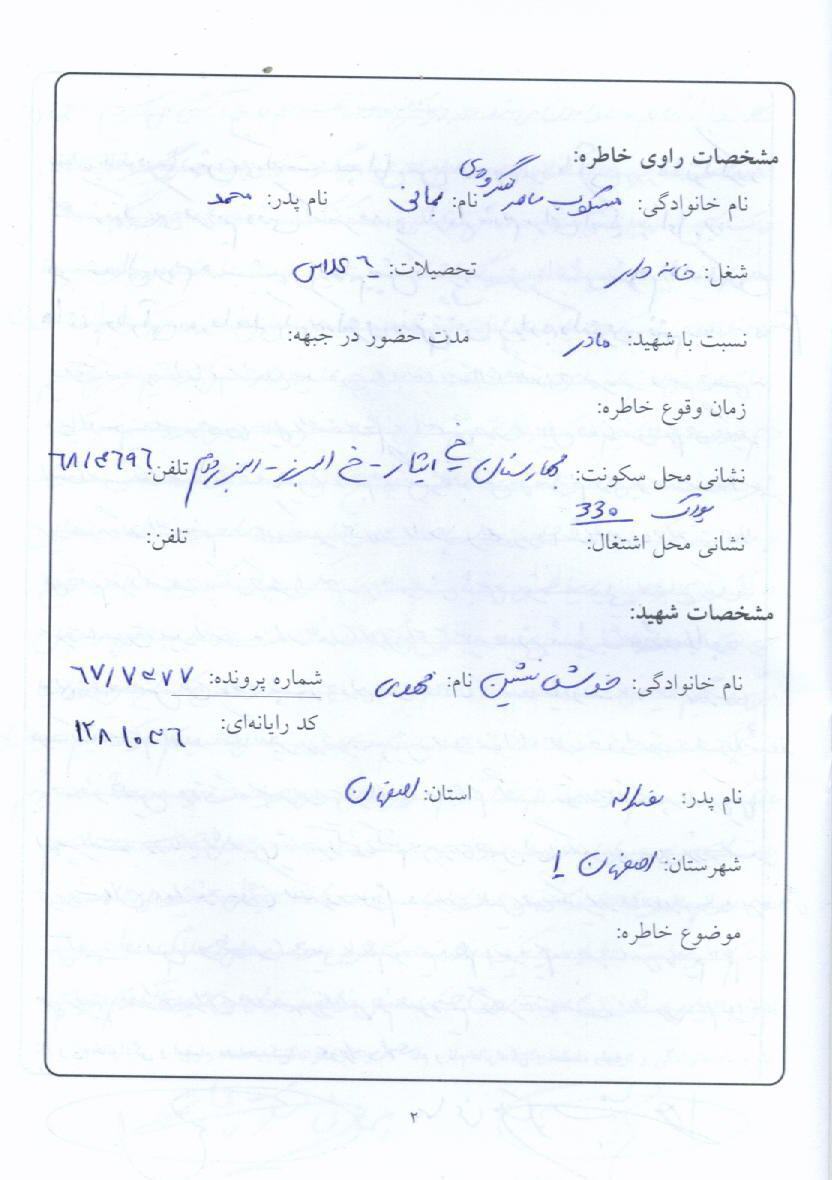 مشخصات راوی خاطره:
نام خانوادگی: نام: نام پدر: محمد
شغل: خانه دار تحصیلات: ٦ کلاس
نسبت با شهید: مادر مدت حضور در جبهه:
زمان وقوع خاطره:
نشانی محل سکونت: بهارستان خ ایثار - خ البرز - البرز دوم تلفن: ٦٨١٤٦٩٦
پلاک 330
نشانی محل اشتغال: تلفن:
مشخصات شهید:
نام خانوادگی: خوش نشین نام: مهدی شماره پرونده: ٦٧/٧٤٧٧
کد رایانه‌ای: ١٢٨١٠٤٦
نام پدر: استان: اصفهان
شهرستان: اصفهان ١
موضوع خاطره:
۲